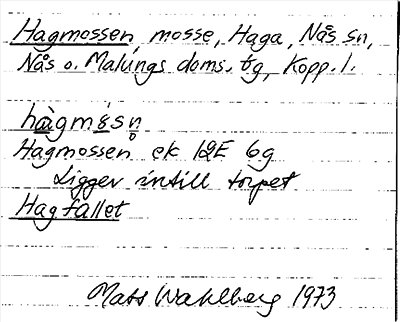 Hagmossen, mosse, Haga, Nås sn,
Nås o. Malungs doms. tg, Kopp. l.
Hagmossen ek 12E 6g
Ligger intill torpet
Hagfallet
Mats Wahlberg 1973